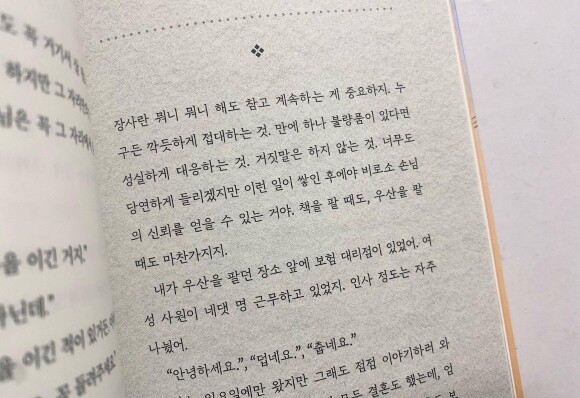 도 꼭 거기서
하지만 그 자리
님은 꼭 그 자리에서
을 이긴 거지."
아닌데."
을 이긴 적이 있거든
꼭 들려주세요
장사란 뭐니 뭐니 해도 참고 계속하는 게 중요하지. 누
구든 깍듯하게 접대하는 것. 만에 하나 불량품이 있다면
성실하게 대응하는 것. 거짓말은 하지 않는 것. 너무도
당연하게 들리겠지만 이런 일이 쌓인 후에야 비로소 손님
의 신뢰를 얻을 수 있는 거야. 책을 팔 때도, 우산을 팔
때도 마찬가지지.
내가 우산을 팔던 장소 앞에 보험 대리점이 있었어. 여
성 사원이 네댓 명 근무하고 있었지. 인사 정도는 자주
나눴어.
"안녕하세요.", "덥네요.", "춥네요."
일요일에만 왔지만 그래도 점점 이야기하러 와
모두 결혼도 했는데, 엄